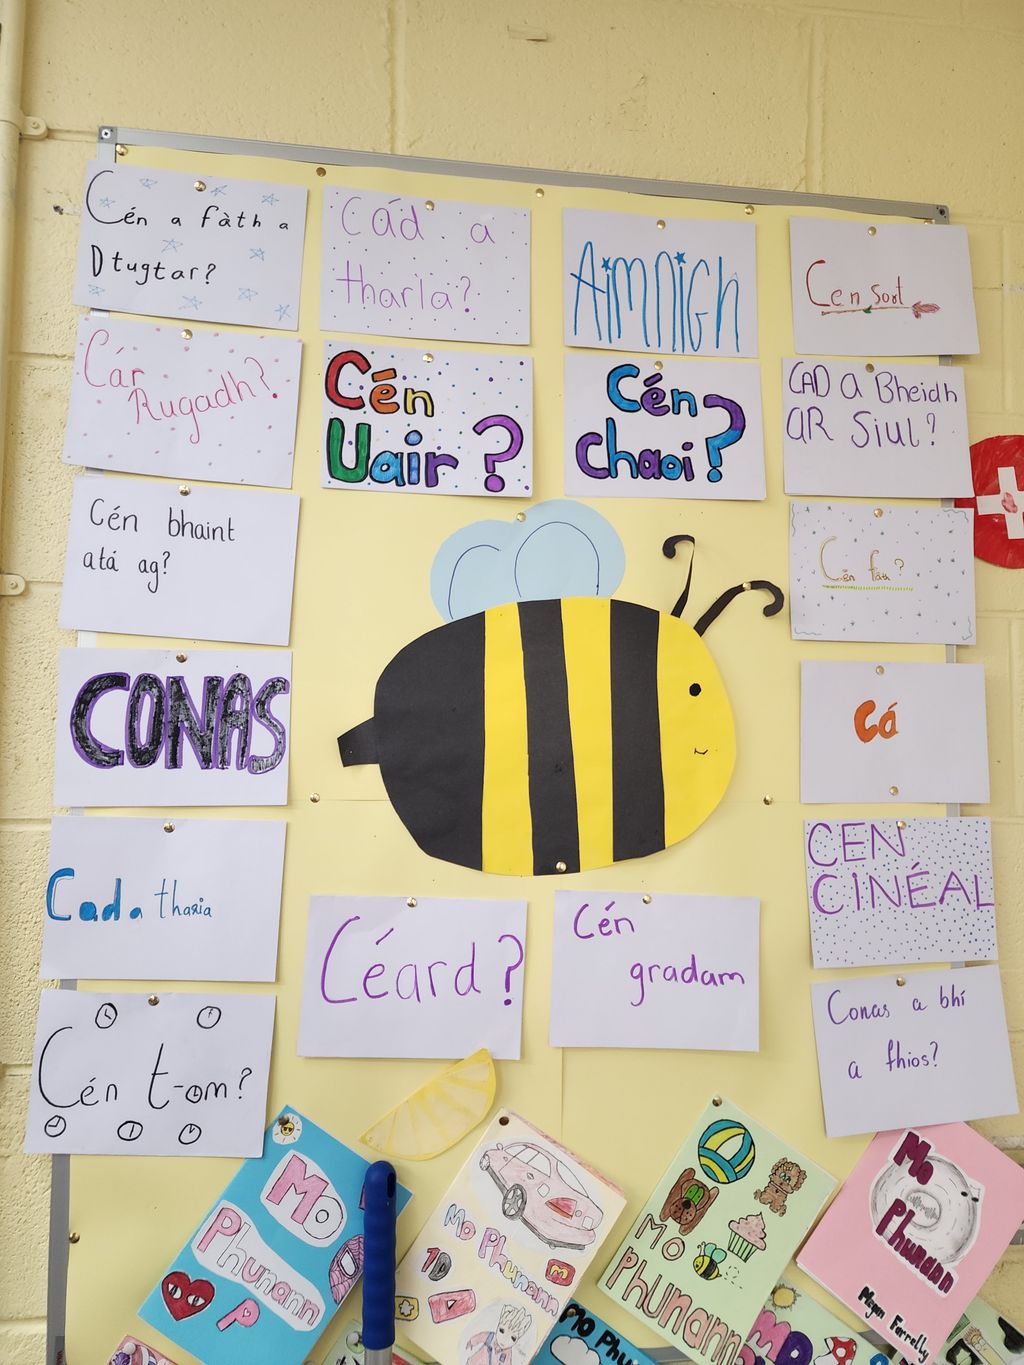 Cén a fàth a
Dtugtar?
Cád a
tharla?
AimNiGh
Cen Sort
Cár
Rugadh?
Cén
Uair?
Cén
chaoi?
CAD a Bheidh
AR Siul?
Cén bhaint
atá ag?
Cén fáth?
CONAS
Cá
Cad a tharla
CEN
CINÉAL
Céard?
Cén
gradam
Conas a bhí
a fhios?
Cén t-am?
Mo
Phunann
P
Mo Phunann
1D
Mo
Phunann
Mo
Phunann
Megan Farrelly
Mo Phu
Mo